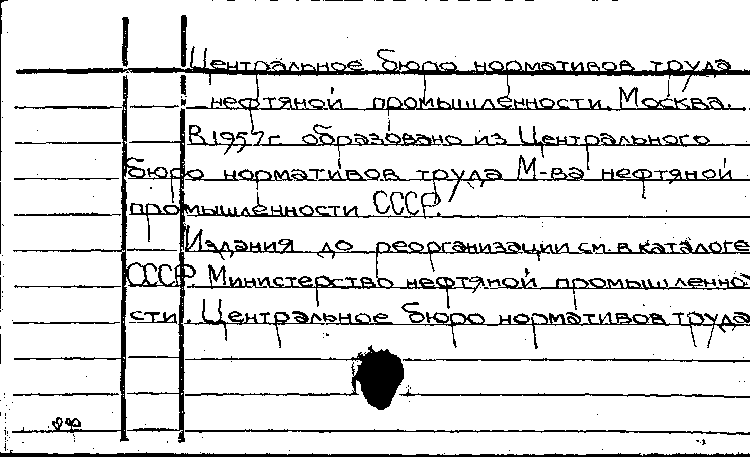 Центральное бюро нормативов труда
нефтяной промышленности. Москва.
В 1957г. образовано из Центрального
бюро нормативов труда М-ва нефтяной
промышленности СССР.
Издания до реорганизации см. в каталоге
СССР. Министерство нефтяной промышленно
сти. Центральное бюро нормативов труда